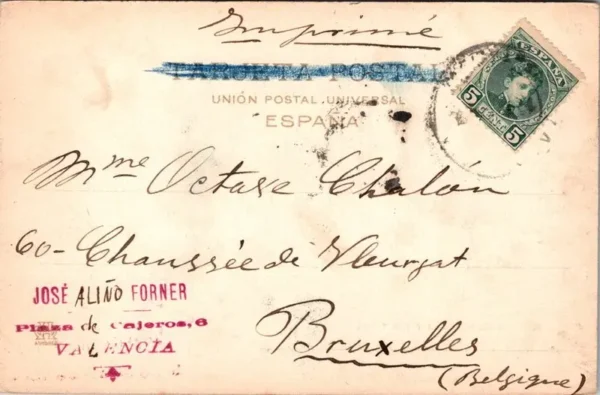 Imprimé
TARJETA POSTAL
UNIÓN POSTAL UNIVERSAL
ESPAÑA
ESPAÑA
5 CENT. 5
Mme Octave Chalón
60- Chaussée de Vleurgat
Bruxelles
(Belgique)
JOSÉ ALIÑO FORNER
Plaza de Cajeros, 6
VALENCIA